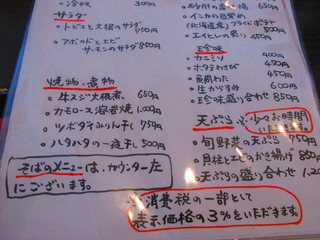 冷奴 300円
サラダ
・トビコと大根のサラダ 750円
・アボカドとエビ
サーモンのサラダ 850円
焼物・煮物
・牛スジ大根煮 650円
・カモロース溶岩焼 1,000円
・ツボダイみりん干し 750円
・ハタハタの一夜干し 500円
そばのメニューは、カウンター左
にございます。
650円
・インカの目覚め
(北海道産)フライドポテト 500円
・エイヒレの炙り 450円
珍味
・カニミソ 400円
・ホタテわさび 450円
・魚開わた
・生かずのこ 600円
・珍味盛り合わせ 850円
天ぷら ※少々お時間
いただきます。
・旬野菜の天ぷら 750円
・貝柱とエビのかき揚げ 850円
・天ぷらの盛り合わせ
※消費税の一部として
表示価格の3%をいただきます。